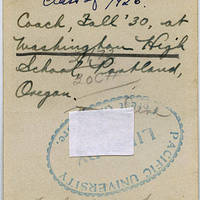 Class of 1926.
Coach, Fall '30, at
Washington High
School, Portland,
Oregon.
PACIFIC UNIVERSITY